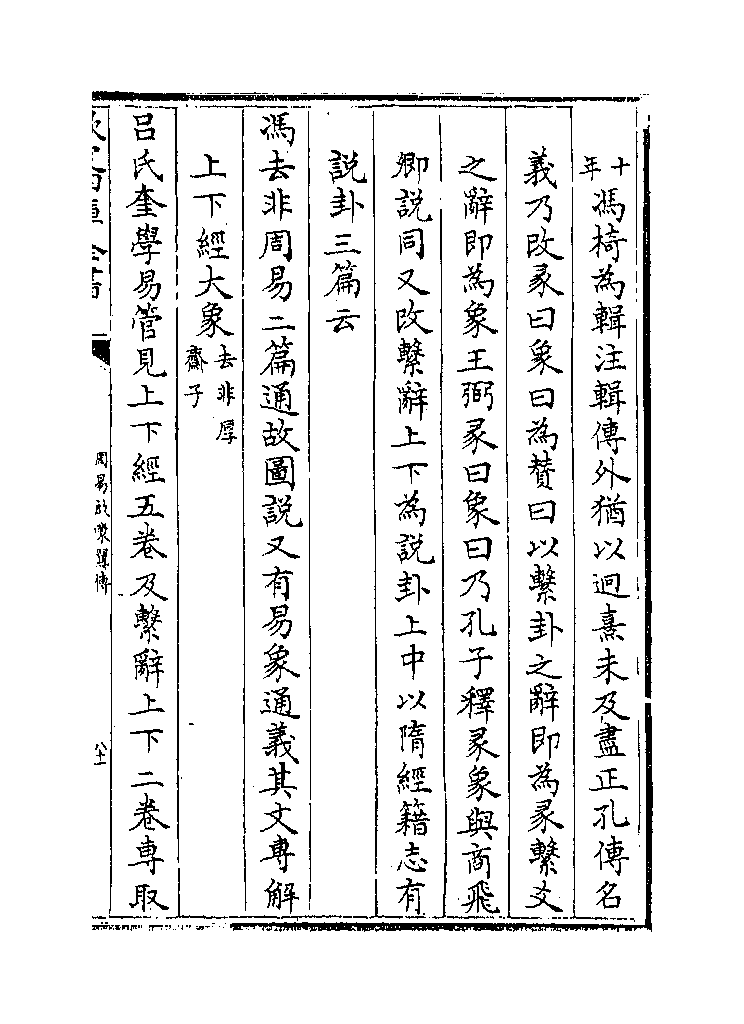 十年馮椅為輯注輯傳外猶以迥熹未及盡正孔傳名
義乃改彖曰象曰為贊曰以繫卦之辭即為彖繫爻
之辭即為象王弼彖曰象曰乃孔子釋彖象與商飛
卿説同又改繫辭上下為説卦上中以隋經籍志有
説卦三篇云
馮去非周易二篇通故圖説又有易象通義其文專解
上下經大象去非厚齋子
吕氏奎學易管見上下經五卷及繫辭上下二卷専取
周易啟蒙翼傳
八十一